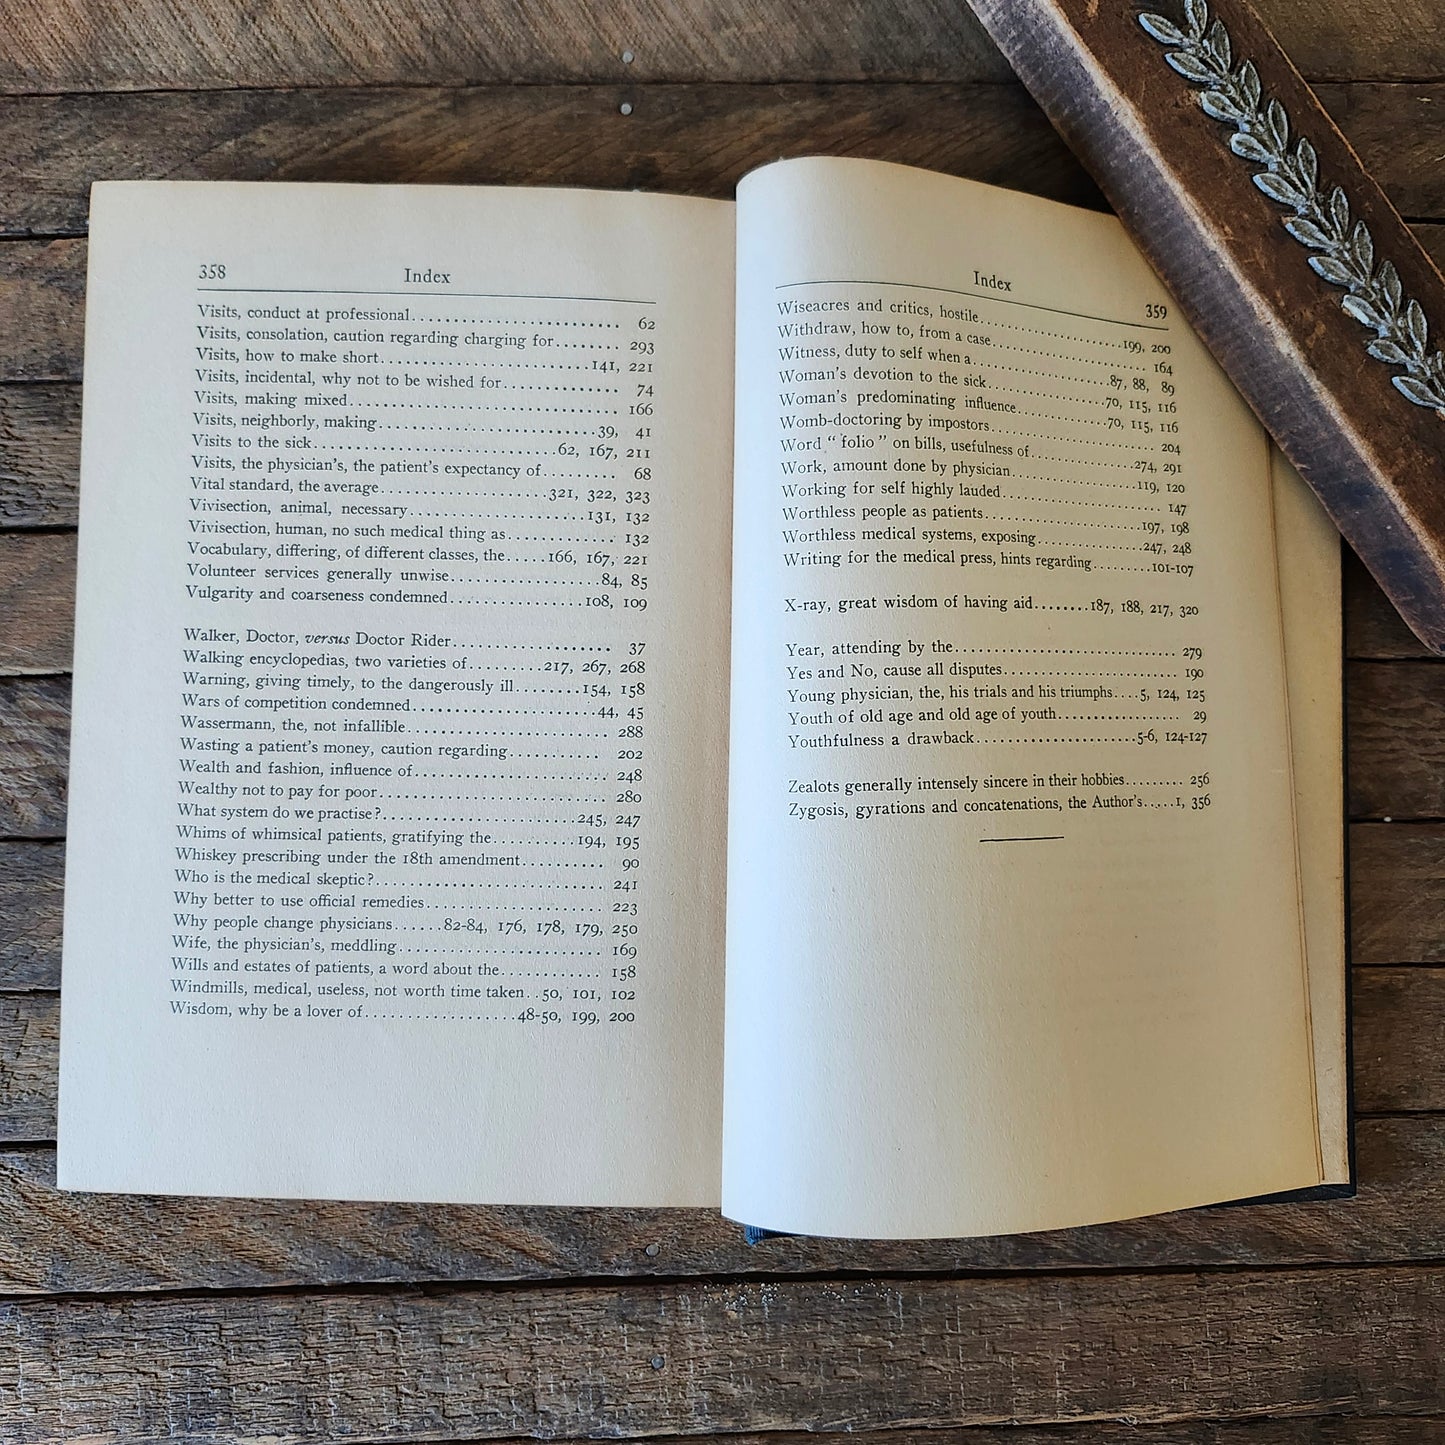 358 Index
Visits, conduct at professional........................ 62
Visits, consolation, caution regarding charging for........ 293
Visits, how to make short........................141, 221
Visits, incidental, why not to be wished for............. 74
Visits, making mixed.............................. 166
Visits, neighborly, making.........................39, 41
Visits to the sick...........................62, 167, 211
Visits, the physician's, the patient's expectancy of......... 68
Vital standard, the average....................321, 322, 323
Vivisection, animal, necessary.....................131, 132
Vivisection, human, no such medical thing as............. 132
Vocabulary, differing, of different classes, the.....166, 167, 221
Volunteer services generally unwise..................84, 85
Vulgarity and coarseness condemned................108, 109
Walker, Doctor, versus Doctor Rider................... 37
Walking encyclopedias, two varieties of.........217, 267, 268
Warning, giving timely, to the dangerously ill........154, 158
Wars of competition condemned......................44, 45
Wassermann, the, not infallible....................... 288
Wasting a patient's money, caution regarding........... 202
Wealth and fashion, influence of...................... 248
Wealthy not to pay for poor.......................... 280
What system do we practise?.......................245, 247
Whims of whimsical patients, gratifying the..........194, 195
Whiskey prescribing under the 18th amendment.......... 90
Who is the medical skeptic?.......................... 241
Why better to use official remedies.................... 223
Why people change physicians......82-84, 176, 178, 179, 250
Wife, the physician's, meddling....................... 169
Wills and estates of patients, a word about the............ 158
Windmills, medical, useless, not worth time taken..50, 101, 102
Wisdom, why be a lover of..................48-50, 199, 200
Index 359
Wiseacres and critics, hostile....................199, 200
Withdraw, how to, from a case........................ 164
Witness, duty to self when a....................87, 88, 89
Woman's devotion to the sick..................70, 115, 116
Woman's predominating influence..............70, 115, 116
Womb-doctoring by impostors........................ 204
Word "folio" on bills, usefulness of................274, 291
Work, amount done by physician..................119, 120
Working for self highly lauded........................ 147
Worthless people as patients.......................197, 198
Worthless medical systems, exposing................247, 248
Writing for the medical press, hints regarding.........101-107
X-ray, great wisdom of having aid........187, 188, 217, 320
Year, attending by the................................ 279
Yes and No, cause all disputes......................... 190
Young physician, the, his trials and his triumphs....5, 124, 125
Youth of old age and old age of youth.................. 29
Youthfulness a drawback.......................5-6, 124-127
Zealots generally intensely sincere in their hobbies......... 256
Zygosis, gyrations and concatenations, the Author's.....1, 356